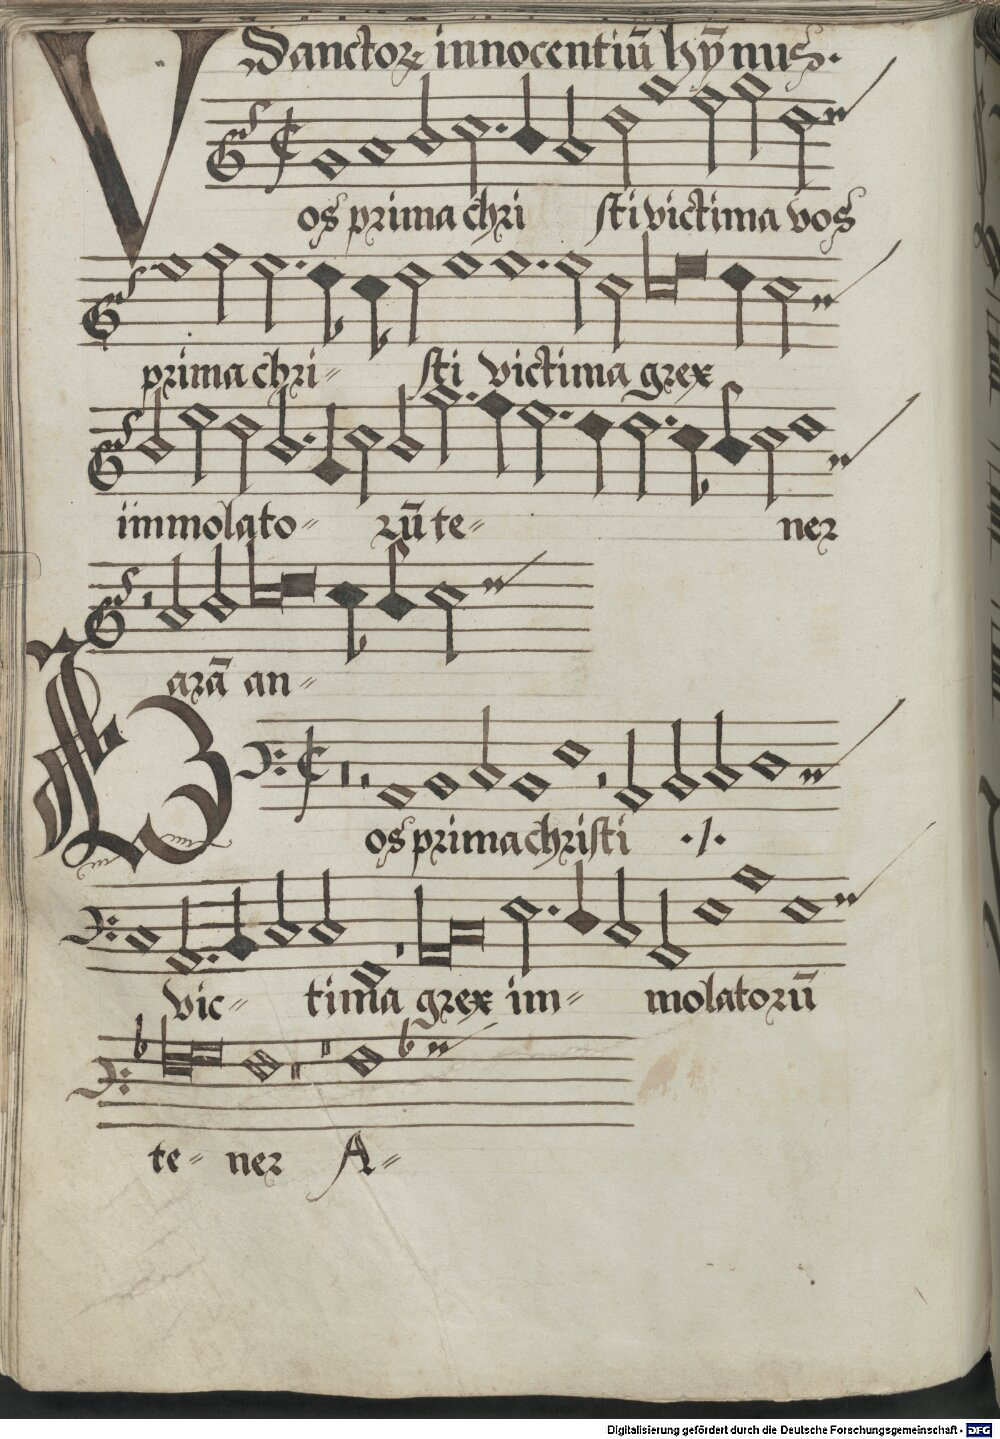 V
Sanctoꝝ innocentiū hȳnus.
os prima chri sti victima vos
prima chri= sti victima grex
immolato= rū te= ner
arā an=
V
os prima christi ./.
vic= tima grex im= molatorū
te= ner A=
Digitalisierung gefördert durch die Deutsche Forschungsgemeinschaft - DFG